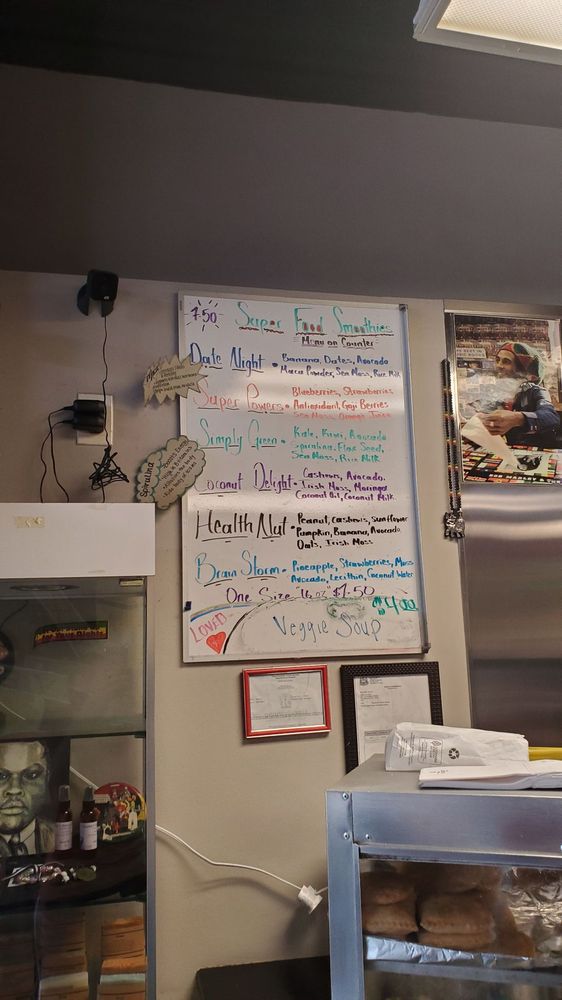 7.50
Super Food Smoothies
Menu on Counter
Date Night • Banana, Dates, Avocado
Maca Powder, Sea Moss, Rice Milk
Super Powers • Blueberries, Strawberries
Antioxidant, Goji Berries
Sea Moss, Orange Juice
Simply Green • Kale, Kiwi, Avocado
Spirulina, Flax Seed,
Sea Moss, Rice Milk
Coconut Delight • Cashews, Avocado,
Irish Moss, Moringa
Coconut Oil, Coconut Milk
Health Nut • Peanut, Cashews, Sunflower
Pumpkin, Banana, Avocado
Oats, Irish Moss
Brain Storm • Pineapple, Strawberries, Moss
Avocado, Lecithin, Coconut Water
One Size 16 oz $7.50
LOVED
Veggie Soup
Spirulina